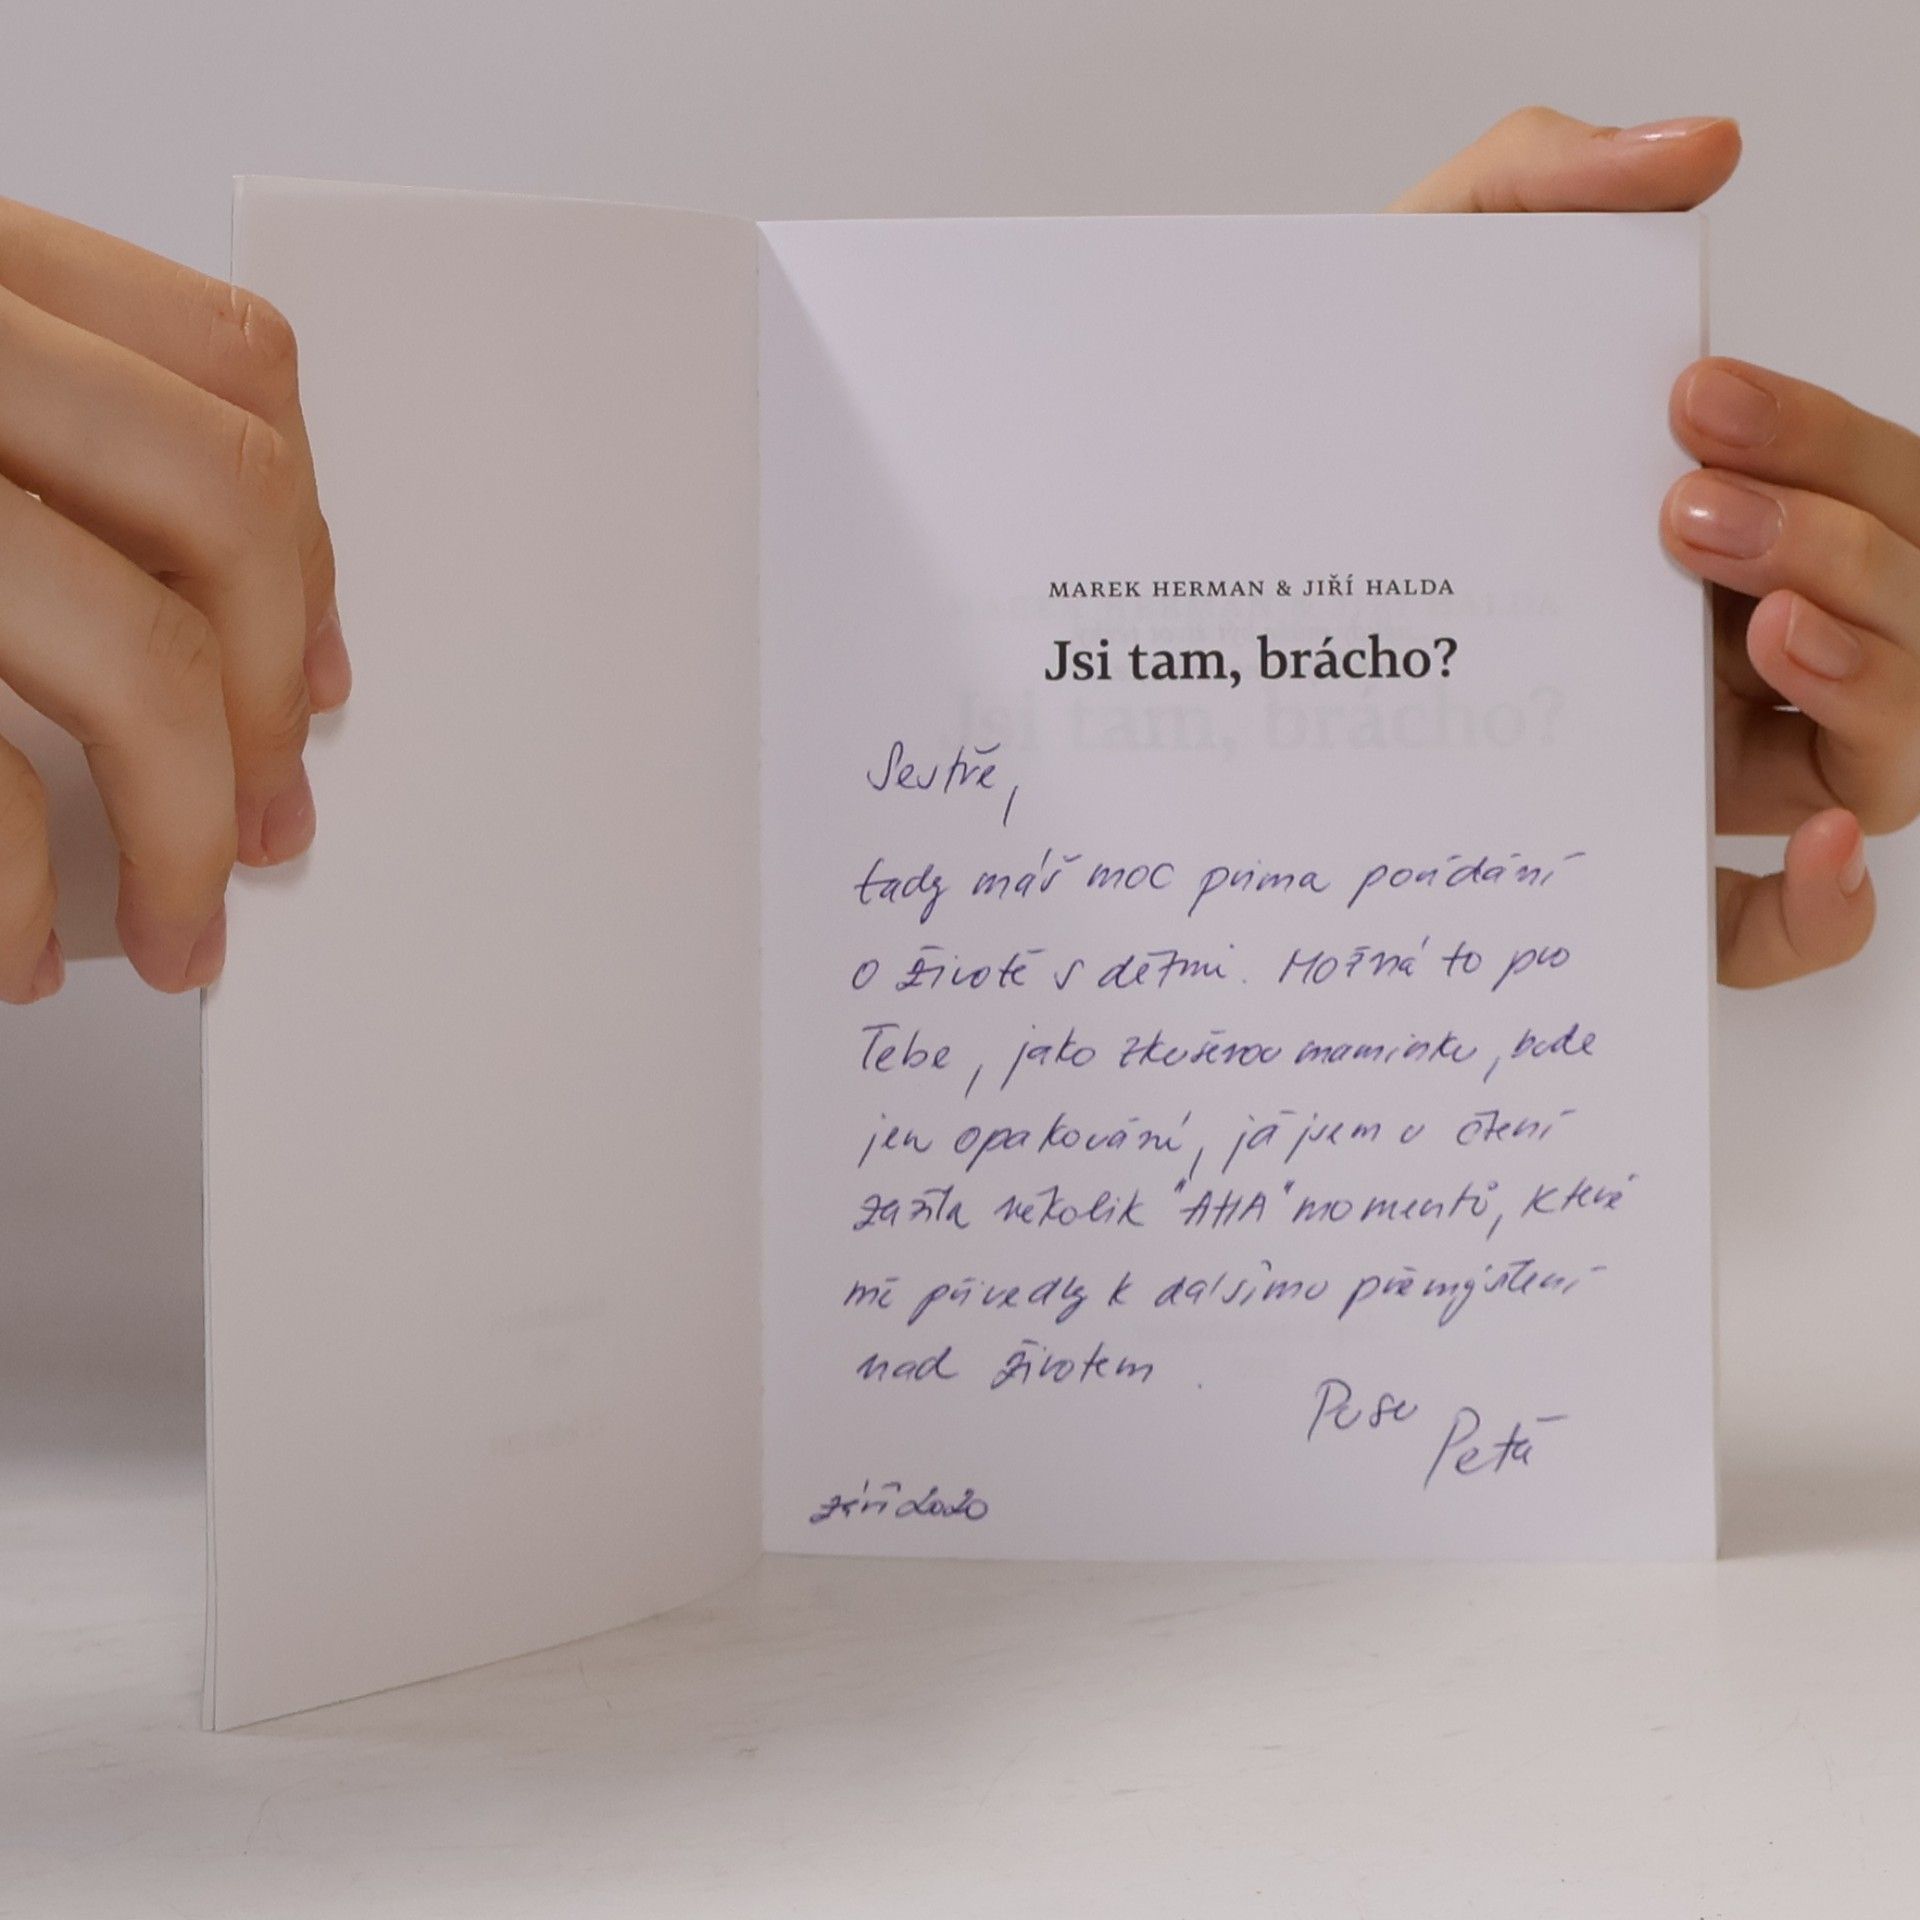 MAREK HERMAN & JIŘÍ HALDA
Jsi tam, brácho?
Sestře,
tady máš moc prima povídání
o životě s dětmi. Možná to pro
Tebe, jako zkušenou maminku, bude
jen opakování, já jsem u čtení
zažila několik "AHA" momentů, které
mě přivedly k dalšímu přemýšlení
nad životem.
Pusu
Petá
září 2020